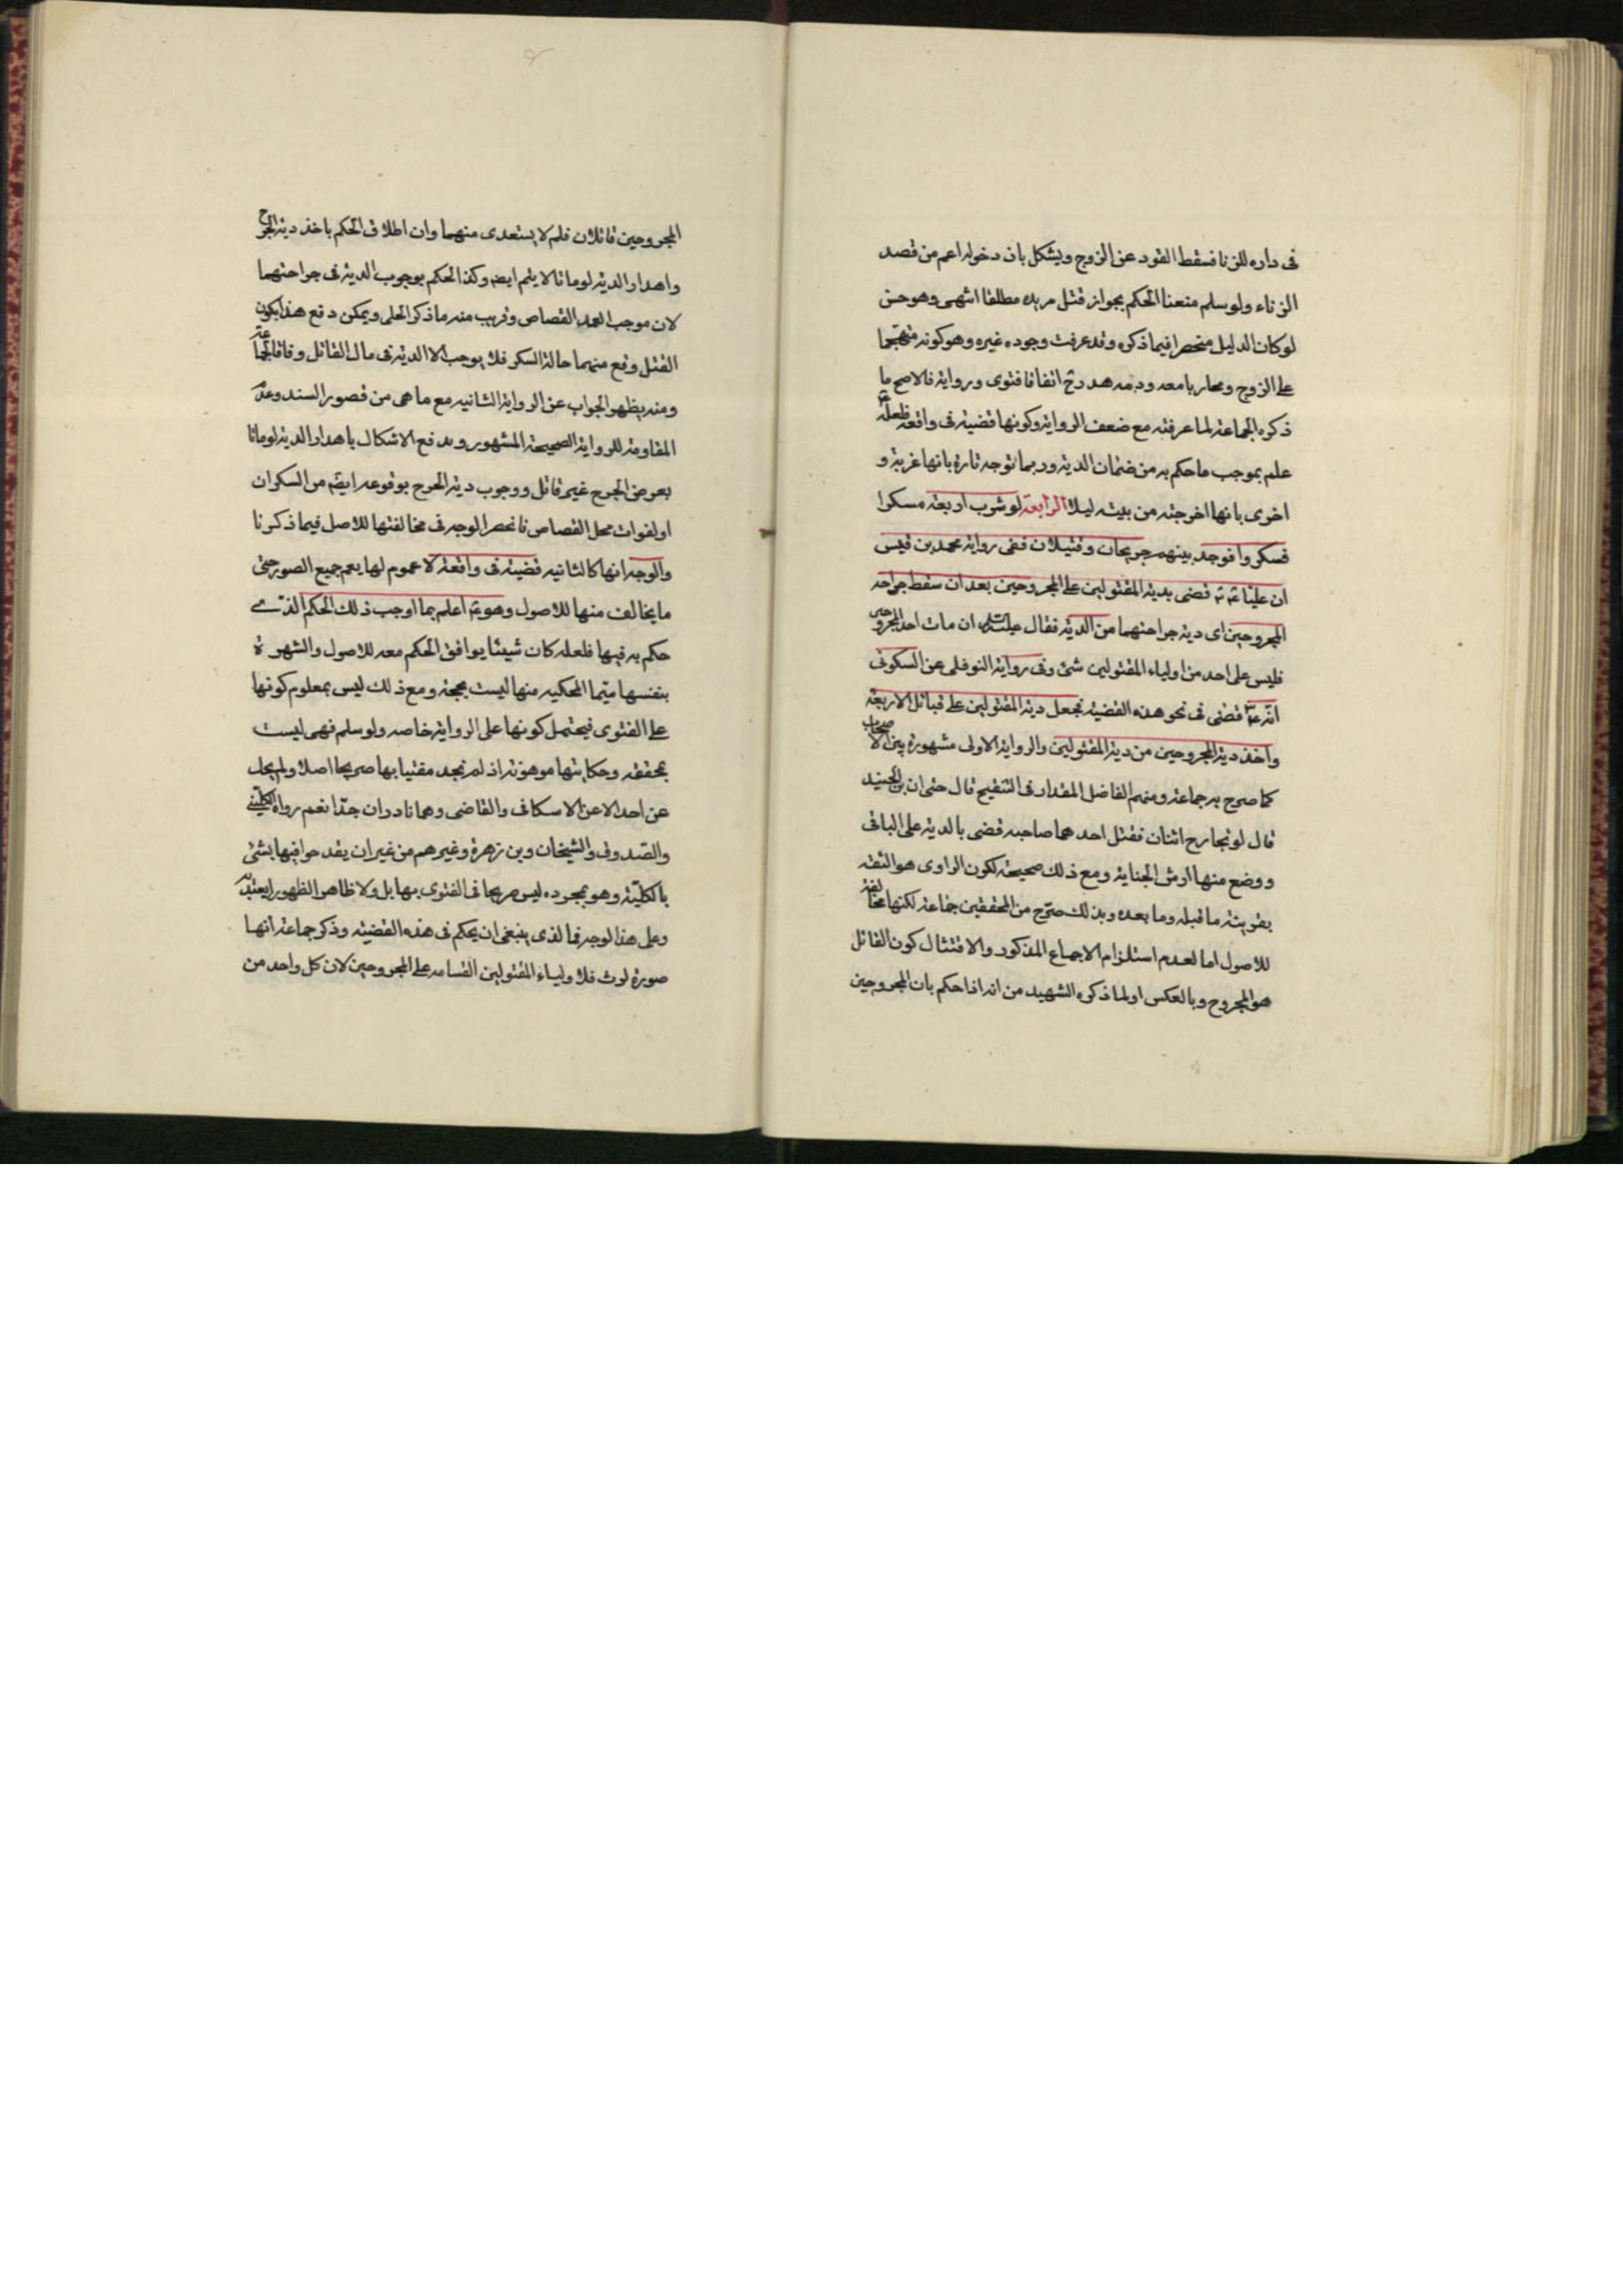 فى داره للزنا فسقط القود عن الزوج ويشكل بان دخوله اعم من قصد
الزناء ولو سلم منعنا الحكم بجواز قتل مريده مطلقا انتهى وهو حسن
لو كان الدليل منحصرا فيما ذكره وقد عرفت وجوده غيره وهو كونه متهجما
على الزوج ومحاربا معه ودمه هدر ح اتفاقا فتوى ورواية فالاصح ما
ذكره الجماعة لما عرفته مع ضعف الرواية وكونها قضية فى واقعة فلعله ع
علم بموجب ما حكم به من ضمان الدية وربما توجه تارة بانها غربته و
اخرى بانها اخرجته من بيته ليلا الرابعة لو شرب اربعة مسكرا
فسكروا فوجد بينهم جريحان وقتيلان ففى رواية محمد بن قيس
ان عليا ع قضى بدية المقتولين على المجروحين بعد ان سقط جراحه
المجروحين اى دية جراحتهما من الدية فقال ان مات احد المجروحين
فليس على احد من اولياء المقتولين شئ وفى رواية النوفلى عن السكونى
انه ع قضى فى نحو هذه القضية فجعل دية المقتولين على قبائل الاربعة
واخذ دية المجروحين من دية المقتولين والرواية الاولى مشهورة بين الاصحاب
كما صرح به جماعة ومنهم الفاضل المقداد فى التنقيح قال حتى ان بن الجنيد
قال لو تجارح اثنان فقتل احدهما صاحبه قضى بالدية على الباقى
ووضع منها ارش الجناية ومع ذلك صحيحة لكون الراوى هو الثقة
بقرينة ما قبله وما بعده وبذلك صرح من المحققين جماعة لكنها مخالفة
للاصول اما لعدم استلزام الاجماع المذكور والاقتتال كون القاتل
هو المجروح وبالعكس او لما ذكره الشهيد من انه اذا حكم بان المجروحين
المجروحين قاتلان فلم لا يستعدى منهما وان اطلاق الحكم باخذ دية الجرح
واهدار الدية لو ماتا لا يتم ايضا وكذا الحكم بوجوب الدية فى جراحتهما
لان موجب العمد القصاص وقريب منه ما ذكر الحلى ويمكن دفع هذا بكون
القتل وقع منهما حالة السكر فلا يوجب الا الدية فى مال القاتل وفاقا لجماعة
ومنه يظهر الجواب عن الرواية الثانيه مع ما هى من قصور السند وعدم
المقاومة للرواية الصحيحة المشهور ويدفع الاشكال باهدار الدية لو ماتا
بعرض الجرح غير قاتل ووجوب دية الجرح بوقوعه ايضا من السكران
او لفوات محل القصاص فانحصر الوجه فى مخالفتها للاصل فيما ذكرنا
والوجه انها كالثانيه قضية فى واقعة لا عموم لها يعم جميع الصور حتى
ما يخالف منها للاصول وهو ع اعلم بما اوجب ذلك الحكم الذى
حكم به فيها فلعله كان شيئا يوافق الحكم معه للاصول والشهرة
بنفسها سيما المحكيه منها ليست بحجة ومع ذلك ليس بمعلوم كونها
على الفتوى فيحتمل كونها على الرواية خاصه ولو سلم فهى ليست
بمحققه وحكايتها موهونه اذ لم نجد مفتيا بها صريحا اصلا ولم يحك
عن احد الا عن الاسكافى والقاضى وهما نادران جدا نعم رواه الكلينى
والصدوق والشيخان وبن زهرة وغيرهم من غير ان يقدحوا فيها بشئ
بالكلية وهو بمجرده ليس صريحا فى الفتوى بها بل ولا ظاهرا لظهور يعتد به
وعلى هذا الوجه فما الذى ينبغى ان يحكم فى هذه القضية وذكر جماعة انها
صورة لوث فلاولياء المقتولين القسامه على المجروحين لان كل واحد من